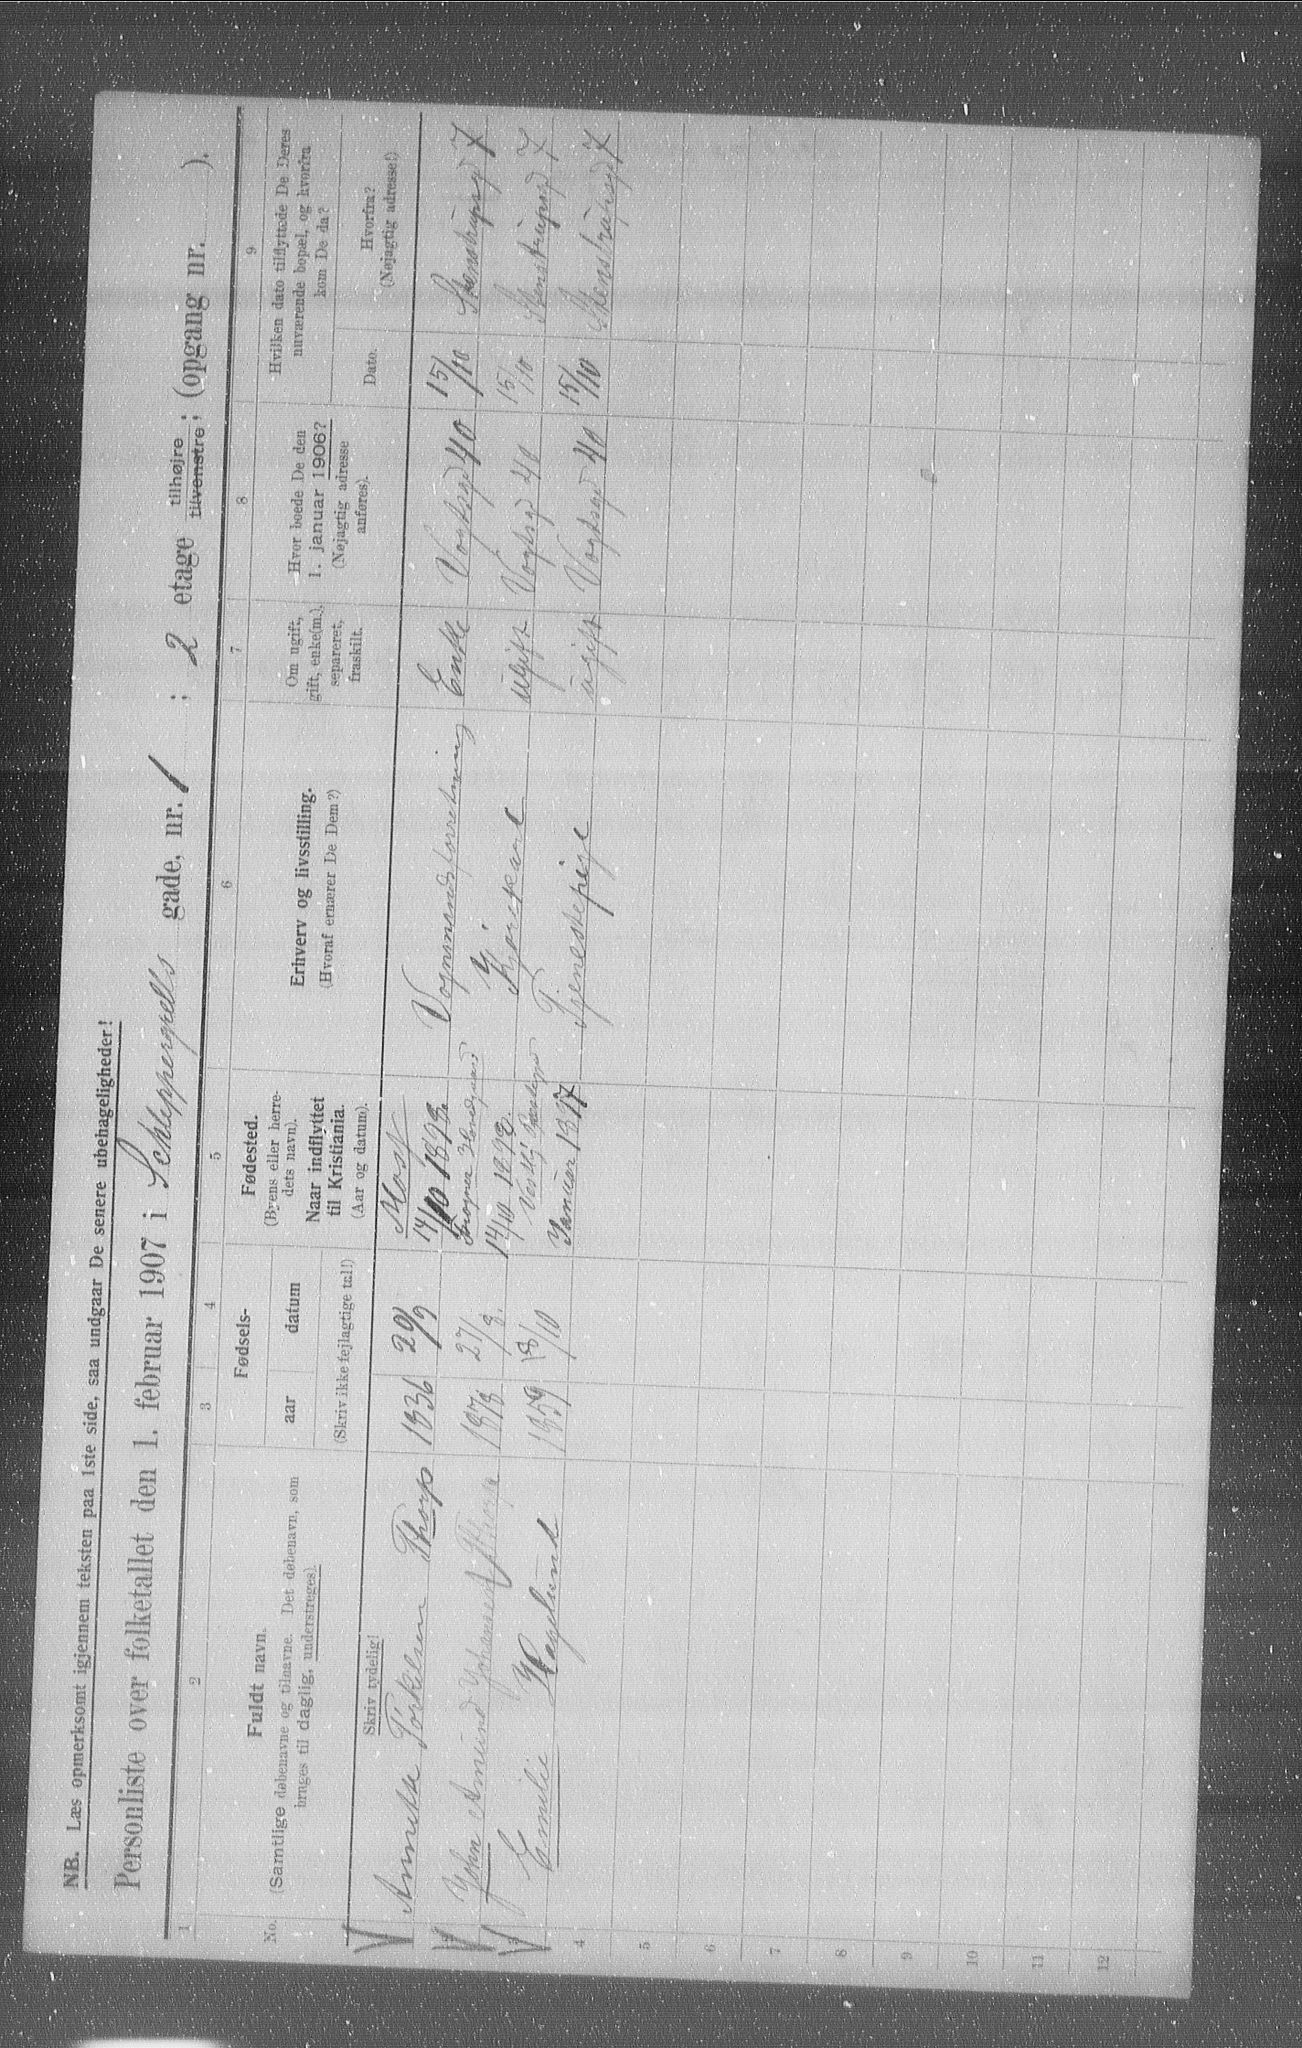 NB. Læs opmerksomt igjennem teksten paa 1ste side, saa undgaar De senere ubehageligheder!
Personliste over folketallet den 1. februar 1907 i Schleppergrells gade, nr. 1 ; 2 etage tilhøjre tilvenstre ; (opgang nr. ).
1 2 3 4 5 6 7 8 9
No.
Fuldt navn.
(Samtlige døbenavne og tilnavne. Det døbenavn, som
bruges til daglig, understreges).
Skriv tydelig!
Fødsels-
aar
datum
(Skriv ikke fejlagtige tal!)
Fødested.
(Byens eller herre-
dets navn).
Naar indflyttet
til Kristiania.
(Aar og datum).
Erhverv og livsstilling.
(Hvoraf ernærer De Dem?)
Om ugift,
gift, enke(m.),
separeret,
fraskilt.
Hvor boede De den
1. januar 1906?
(Nøjagtig adresse
anføres).
Hvilken dato tilflyttede De Deres
nuværende bopæl, og hvorfra
kom De da?
Dato.
Hvorfra?
(Nøjagtig adresse!)
Annikke Torkelsen Thorp 1836 29/9 Moss 14/10 1898. Vognmandsforretning Enke Vogtsgd 40 15/10 Stenstrupsgd 7
John Amund Johansen Thorp 1878 27/8. 14/10 1898. Kjørekarl ugift Vogtsgd 40 15/10 Stenstrupsgd 7
3 Emilie Hagelund 1859 18/10 Januar 1877 Tjenestepige ugift Vogtsgd 40 15/10 Stenstrupsgd 7
4
5
6
7
8
9
10
11
12